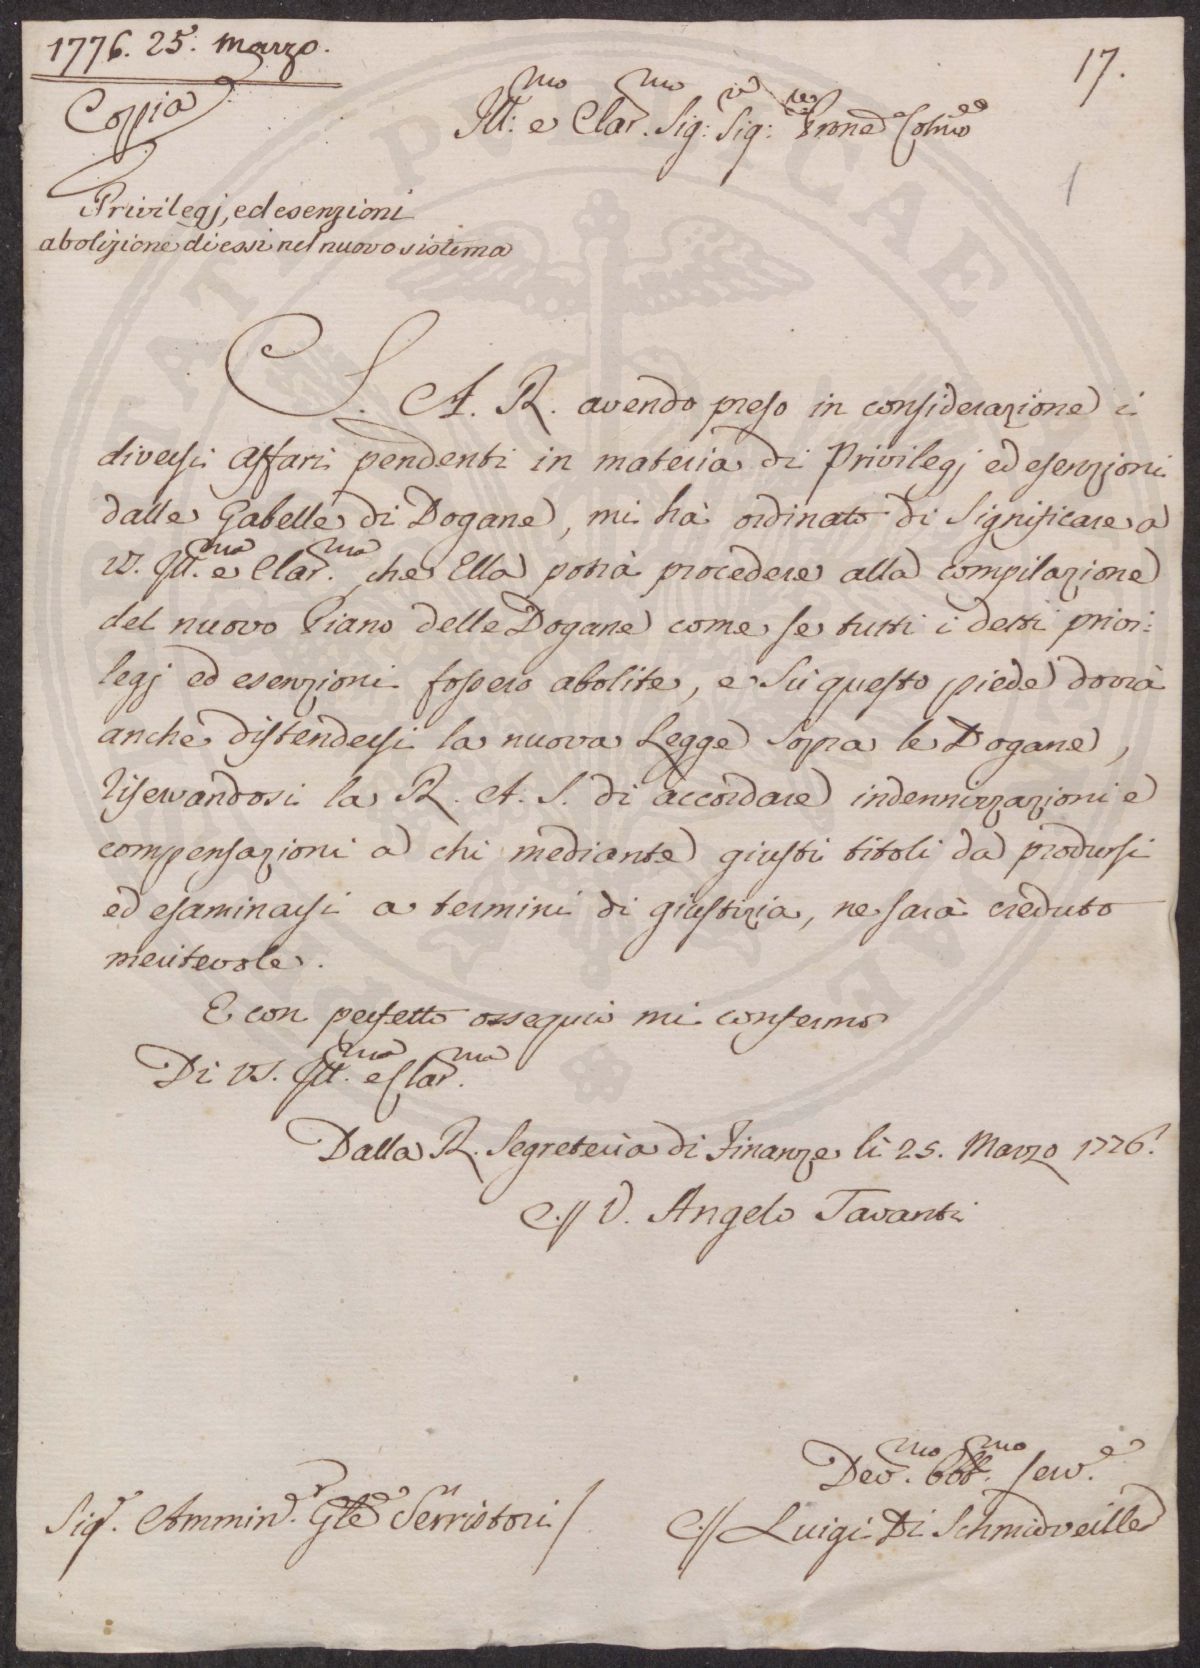 1776. 25. Marzo.
17.
Coppia
Ill:mo e Clar.mo Sig: Sig: Prone Colmo
1
Privilegj, ed esenzioni
abolizione di essi nel nuovo sistema
S. A. R. avendo preso in considerazione i
diversi affari pendenti in materia di Privilegj ed esenzioni
dalle Gabelle di Dogane, mi hà ordinato di significare a
V. Ill.ma e Clar.ma che Ella potrà procedere alla compilazione
del nuovo Piano delle Dogane come se tutti i detti privi:
legj ed esenzioni fossero abolite, e sù questo piede dovrà
anche distendersi la nuova Legge sopra le Dogane,
riservandosi la R. A. S. di accordare indennizzazioni e
compensazioni a chi mediante giusti titoli da prodursi
ed esaminarsi a termini di giustizia, ne sarà creduto
meritevole.
E con perfetto ossequio mi confermo
Di VS. Ill.ma e Clar.ma
Dalla R. Segreteria di Finanze li 25. Marzo 1776.
V. Angelo Tavanti
Dev.mo Obb.mo Serv.e
Sig.r Ammin.r Gle Serristori
Luigi Di Schmidveille